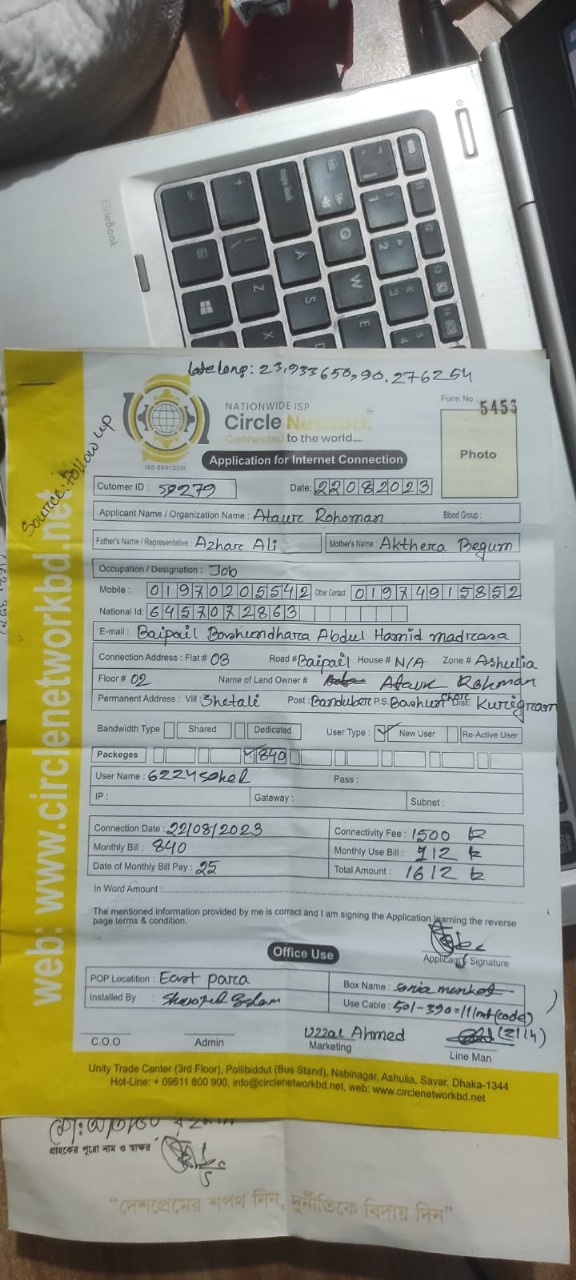 EliteBook
late long: 23,933650,90.276254
Source: Follow up
NATIONWIDE ISP
Circle Network
Connected to the world....
ISO 9001:2015
Form No
5453
Photo
Application for Internet Connection
Cutomer ID : 59279 Date: 22082023
Applicant Name / Organization Name : Ataur Rohoman Blood Group :
Father's Name / Representative : Azhar Ali Mother's Name : Akthera Begum
Occupation / Designation : Job
Mobile : 01970205542 Other Contact 01974915852
National Id: 6457072863
E-mail : Baipail Boshundhara Abdul Hamid madrasa
Connection Address : Flat # 03 Road # Baipail House # N/A Zone # Ashulia
Floor # 02 Name of Land Owner # Ataur Rohman
Permanent Address : Vill Shetali Post : P.S. Dist: Kurigram
Bandwidth Type Shared Dedicated User Type : New User Re-Active User
Packeges 840
User Name : 6224sohel Pass :
IP : Gateway : Subnet :
Connection Date : 22/08/2023 Connectivity Fee : 1500 tk
Monthly Bill : 840 Monthly Use Bill : 112 tk
Date of Monthly Bill Pay : 25 Total Amount : 1612 tk
In Word Amount :
The mentioned information provided by me is correct and I am signing the Application learning the reverse
page terms & condition.
Applicant Signature
Office Use
POP Locatition : East para Box Name : sonia market
Installed By Use Cable : 501-390=111mt(code)
(2114)
Uzzal Ahmed
C.O.O Admin Marketing Line Man
Unity Trade Center (3rd Floor), Pollibiddut (Bus Stand), Nabinagar, Ashulia, Savar, Dhaka-1344
Hot-Line: + 09611 800 900, info@circlenetworkbd.net, web: www.circlenetworkbd.net
web: www.circlenetworkbd.net
গ্রাহকের পুরো নাম ও স্বাক্ষর
"দেশপ্রেমের শপথ নিন, দুর্নীতিকে বিদায় দিন"